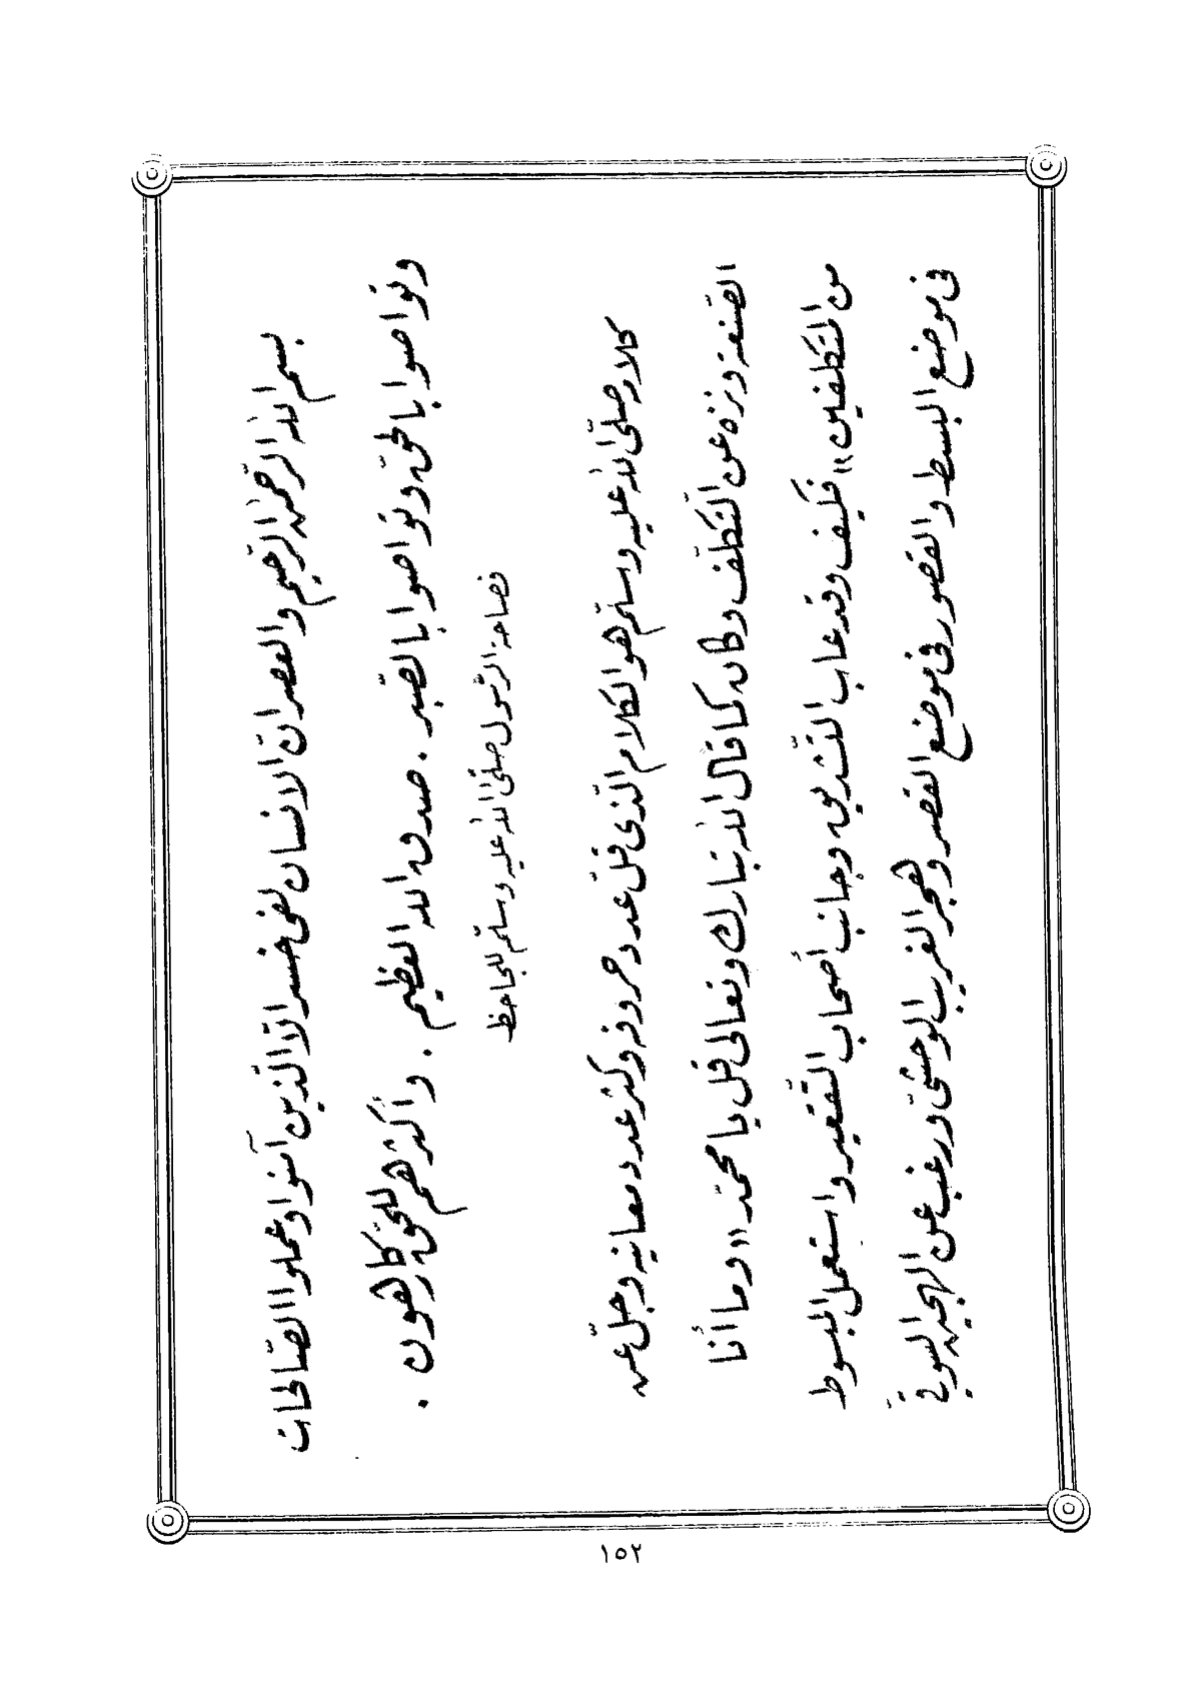 بسم الله الرحمن الرحيم والعصر إنّ الانسان لفى خسر الاّ الّذين آمنوا وعملوا الصّالحات
وتواصوا بالحقّ وتواصوا بالصّبر . صدق الله العظيم . وأكثرهم للحقّ كارهون .
فصاحة الرّسول صلّى الله عليه وسلّم للجاحظ
كلامه صلّى الله عليه وسلّم هو الكلام الّذى قلّ عدد حروفه وكثر عدد معانيه وجلّ عن
الصّنعة ونزه عن التّكلّف وكان كما قال الله تبارك وتعالى قل يا محمّد «وما أنا
من المتكلّفين» فكيف وقد عاب التّشديق وجانب أصحاب التّقعير واستعمل المبسوط
فى موضع البسط والمقصور فى موضع القصر وهجر الغريب الوحشىّ ورغب عن الهجين السوقىّ
١٥٢